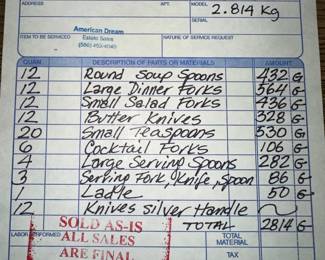 ADDRESS APT. MODEL 2.814 Kg
SERIAL
American Dream
Estate Sales
ITEM TO BE SERVICED NATURE OF SERVICE REQUEST
QUAN. DESCRIPTION OF PARTS OR MATERIALS AMOUNT
12 Round Soup Spoons 432 G
12 Large Dinner Forks 564 G
12 Small Salad Forks 436 G
12 Butter Knives 328 G
20 Small TeaSpoons 530 G
6 Cocktail Forks 106 G
4 Large Serving Spoons 282 G
3 Serving Fork, Knife, Spoon 86 G
1 Ladle 50 G
12 Knives Silver Handle
SOLD AS-IS TOTAL 2814 G
LABOR PERFORMED
ALL SALES TOTAL MATERIAL
ARE FINAL TAX